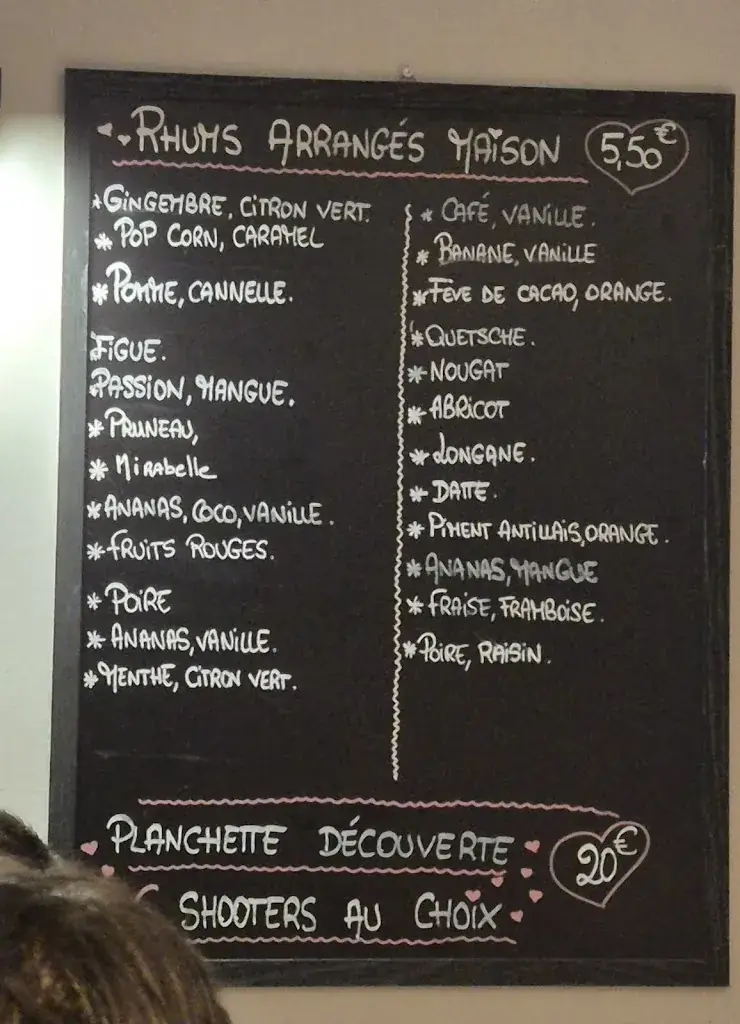 RHUMS ARRANGÉS MAISON 5,50€
*GINGEMBRE, CITRON VERT.
* POP CORN, CARAMEL
*POMME, CANNELLE.
FIGUE.
PASSION, MANGUE.
* PRUNEAU,
* Mirabelle
*ANANAS, COCO, VANILLE.
*FRUITS ROUGES.
* POIRE
* ANANAS, VANILLE.
*MENTHE, CITRON VERT.
* CAFÉ, VANILLE.
* BANANE, VANILLE
*FÈVE DE CACAO, ORANGE.
*QUETSCHE.
*NOUGAT
*ABRICOT
*LONGANE.
*DATTE.
*PIMENT ANTILLAIS, ORANGE.
*ANANAS, MANGUE
*FRAISE, FRAMBOISE.
*POIRE, RAISIN.
PLANCHETTE DÉCOUVERTE 20€
SHOOTERS AU CHOIX